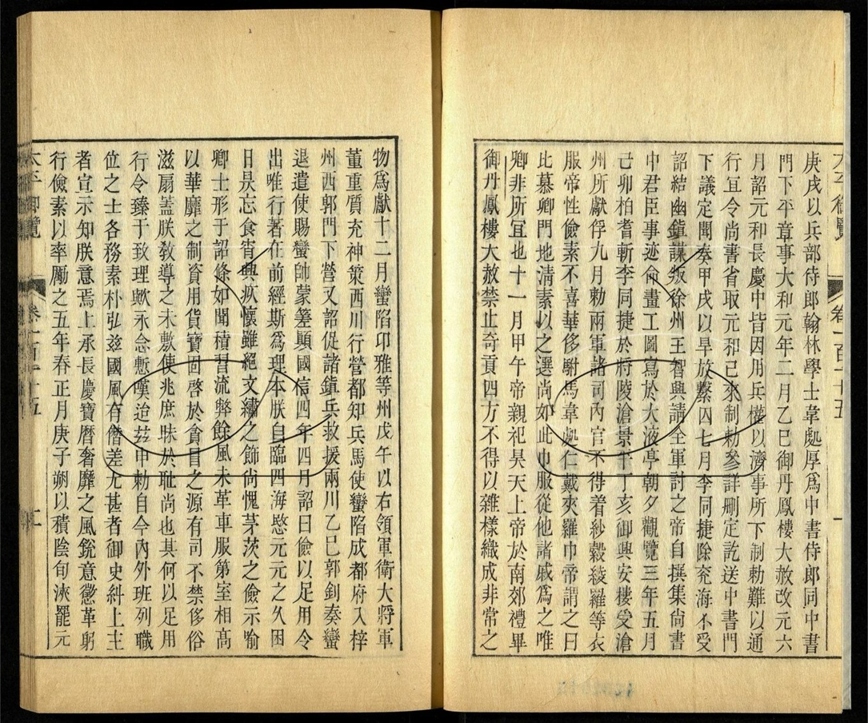 庚戌以兵部侍郎翰林學士韋處厚爲中書侍郎同中書
門下平章事大和元年二月乙巳御丹鳳樓大赦改元六
月詔元和長慶中皆因用兵權以濟事所下制勅難以通
行宜令尚書省取元和已來制勅參詳刪定訖送中書門
下議定聞奏甲戌以旱放繫囚七月李同捷除兗海不受
詔結幽鎮謀叛徐州王智興請全軍討之帝自撰集尚書
中君臣事迹命畫工圖寫於太液亭朝夕觀覽三年五月
己卯柏耆斬李同捷於將陵滄景平丁亥御興安樓受滄
州所獻俘九月勅兩軍諸司內官不得着紗縠綾羅等衣
服帝性儉素不喜華侈駙馬韋處仁戴夾羅巾帝謂之曰
比慕卿門地清素以之選尚如此巾服從他諸戚爲之唯
卿非所宜也十一月甲午帝親祀昊天上帝於南郊禮畢
御丹鳳樓大赦禁止奇貢四方不得以雜樣織成非常之
太平御覽
卷一百十五
物爲獻十二月蠻陷卭雅等州戊午以右領軍衛大將軍
董重質充神策西川行營都知兵馬使蠻陷成都府入梓
州西郭門下營又詔促諸鎮兵救援兩川乙巳郭釗奏蠻
退遣使賜蠻帥蒙嵳顛國信四年四月詔曰儉以足用令
出唯行著在前經斯爲理本朕自臨四海愍元元之久困
日昃忘食宵興疚懷雖絕文繡之飾尚愧茅茨之儉示喻
卿士形于詔條如聞積習流弊餘風未革車服第室相高
以華靡之制資用貨寶固啓於貪冒之源有司不禁侈俗
滋扇蓋朕敎導之未敷使兆庶昧於耻尚也其何以足用
行令臻于致理歟永念慙嘆治玆申勅自今內外班列職
位之士各務素朴弘玆國風有僭差尤甚者御史糾上主
者宣示知朕意焉上承長慶寶曆奢靡之風銳意懲革躬
行儉素以率厲之五年春正月庚子朔以積陰旬浹罷元
太平御覽
卷一百十五